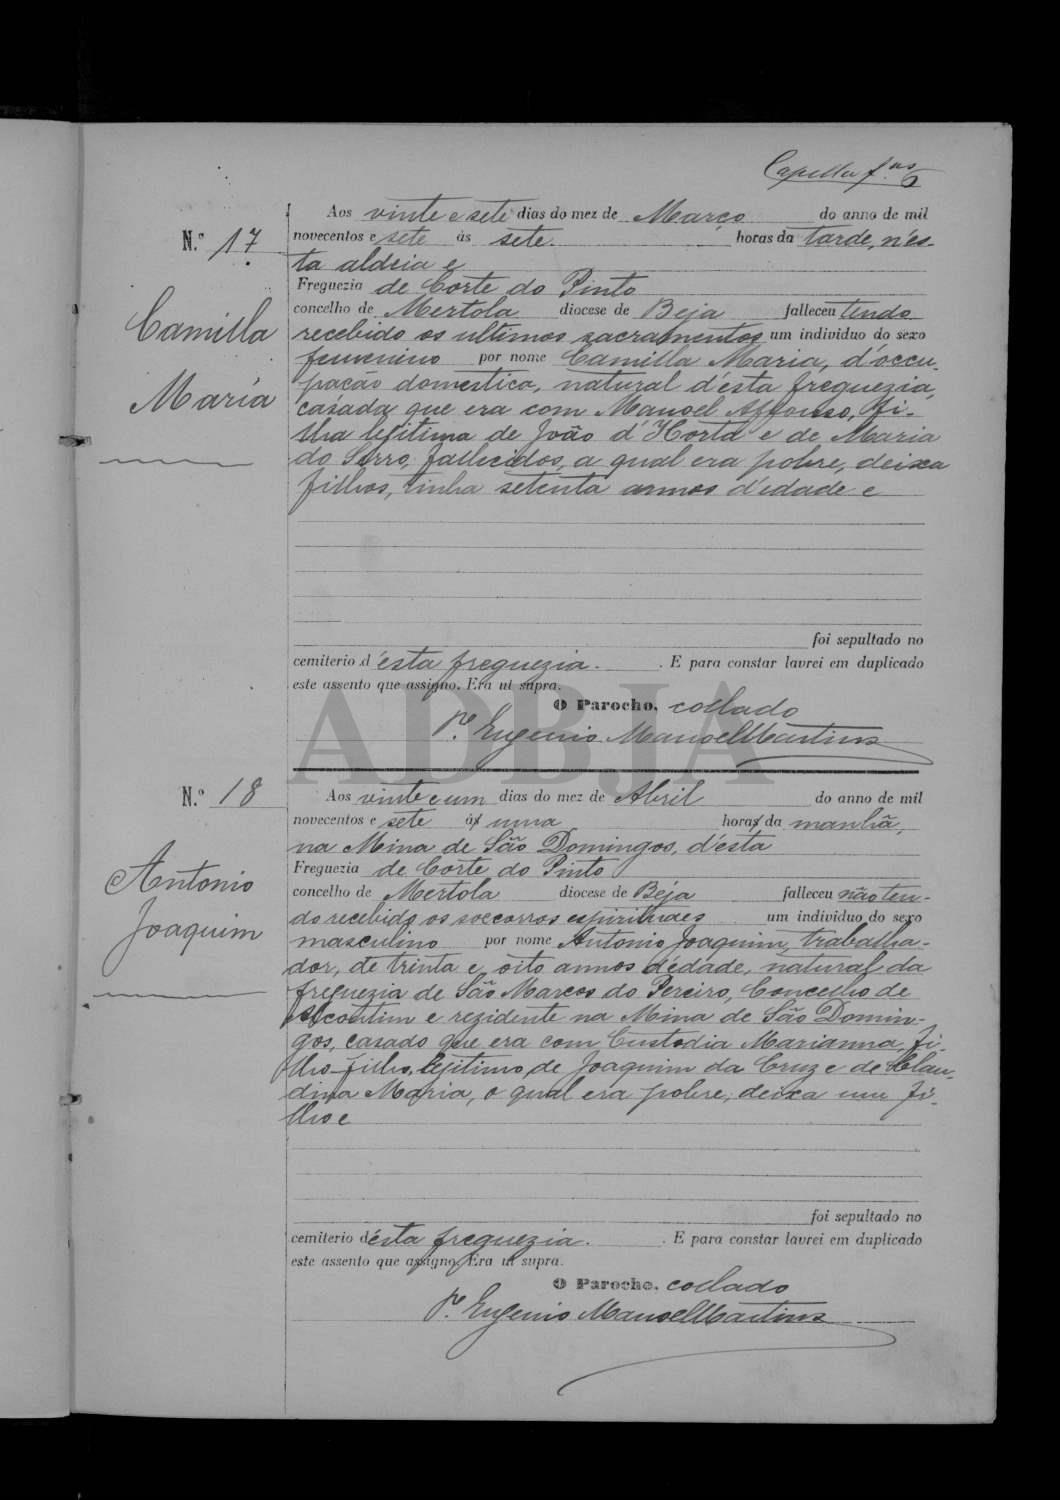 Capella f.ᵃˢ 6
Aos vinte e sete dias do mez de Março do anno de mil
N.º 17
novecentos e sete ás sete. horas da tarde, n'es-
ta aldeia e
Freguezia de Corte do Pinto
concelho de Mertola diocese de Beja falleceu tendo
Camilla
recebido os ultimos sacramentos um individuo do sexo
femenino por nome Camilla Maria, d'occu-
pação domestica, natural d'ésta freguezia,
Maria
casada que era com Manoel Affonso, fi-
lha legitima de João d'Horta e de Maria
do Serro, fallecidos, a qual era pobre, deixa
filhos, tinha setenta annos d'edade e
foi sepultado no
cemiterio d'ésta freguezia. . E para constar lavrei em duplicado
este assento que assigno. Era ut supra.
O Parocho, collado
P.ᵉ Eugenio Manoel Martins
ADBJA
N.º 18
Aos vinte e um dias do mez de Abril do anno de mil
novecentos e sete á uma hora da manhã,
na Mina de São Domingos, d'ésta
Freguezia de Corte do Pinto
Antonio
concelho de Mertola diocese de Beja falleceu não ten-
Joaquim
do recebido os soccorros espirituaes um individuo do sexo
masculino por nome Antonio Joaquim, trabalha-
dor, de trinta e oito annos d'edade, natural da
freguezia de São Marcos do Pereiro, Concelho de
Alcoutim e rezidente na Mina de São Domin-
gos, casado que era com Custodia Marianna, fi-
lho filho legitimo, de Joaquim da Cruz e de Clau-
dina Maria, o qual era pobre, deixa um fi-
lho e
foi sepultado no
cemiterio d'ésta freguezia. . E para constar lavrei em duplicado
este assento que assigno. Era ut supra.
O Parocho, collado
P.ᵉ Eugenio Manoel Martins